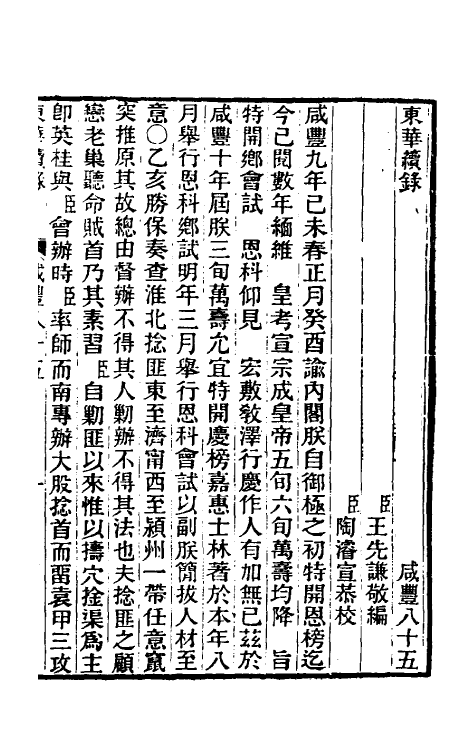 東華續錄　咸豐八十五
臣王先謙敬編
臣陶濬宣恭校
咸豐九年己未春正月癸酉諭內閣朕自御極之初特開恩榜迄
今已閱數年緬維　皇考宣宗成皇帝五旬六旬萬壽均降　旨
特開鄉會試　恩科仰見　宏敷教澤行慶作人有加無已茲於
咸豐十年屆朕三旬萬壽允宜特開慶榜嘉惠士林著於本年八
月舉行恩科鄉試明年三月舉行恩科會試以副朕簡拔人材至
意○乙亥勝保奏查淮北捻匪東至濟甯西至潁州一帶任意竄
突推原其故總由督辦不得其人勦辦不得其法也夫捻匪之顧
戀老巢聽命賊首乃其素習　臣自勦匪以來惟以擣穴捦渠爲主
卽英桂與　臣會辦時　臣率師而南專辦大股捻首而畱袁甲三攻
東華續錄　咸豐八十五　一